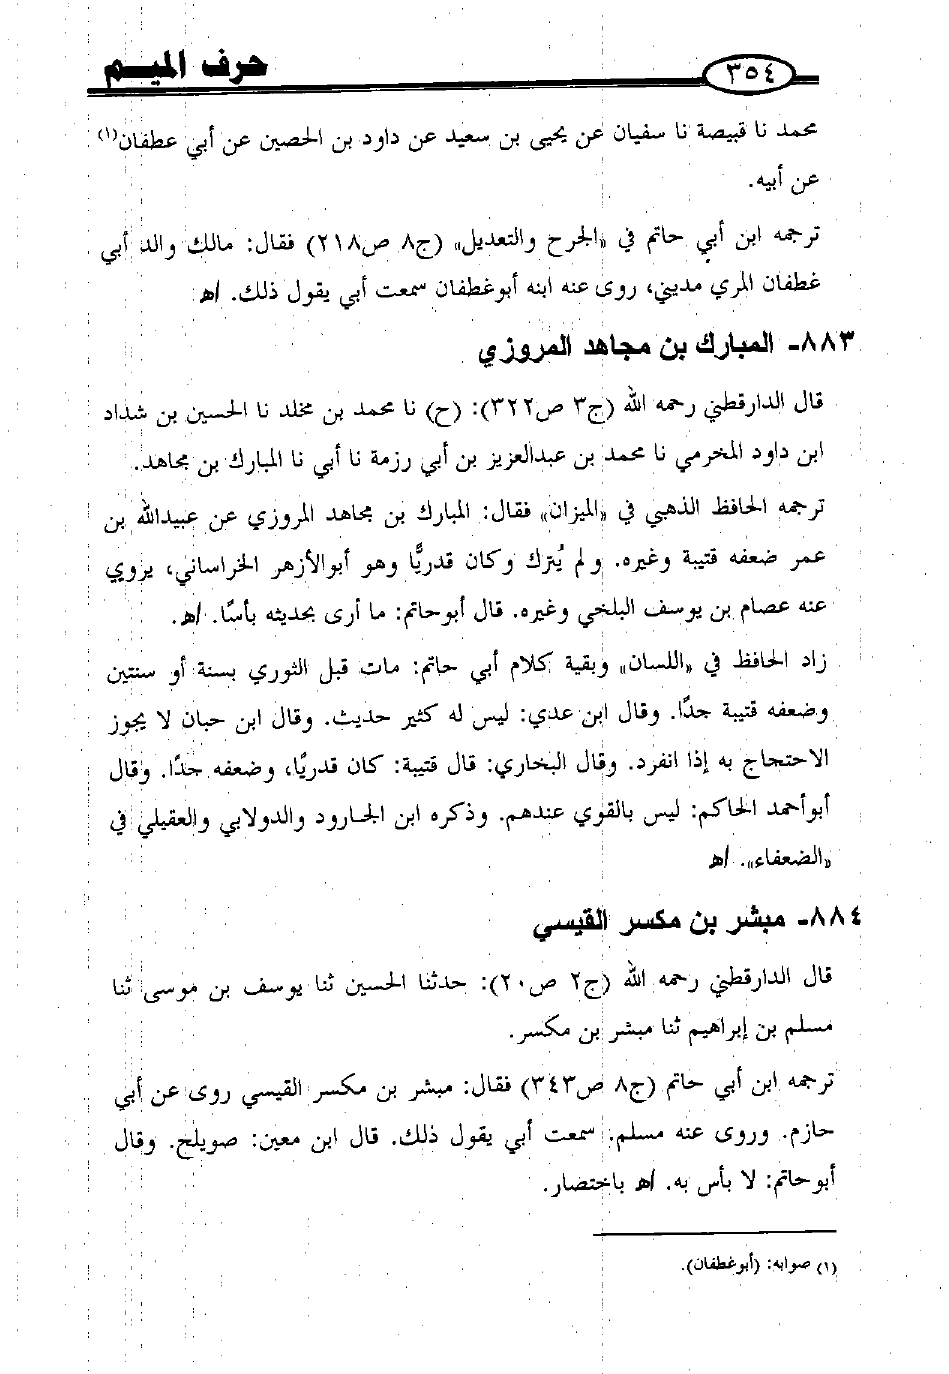 حرف الميم
٣٥٤
محمد نا قبيصة نا سفيان عن يحيى بن سعيد عن داود بن الحصين عن أبي عطفان(١)
عن أبيه.
ترجمه ابن أبي حاتم في «الجرح والتعديل» (ج٨ ص٢١٨) فقال: مالك والد أبي
غطفان المري مديني، روى عنه ابنه أبوغطفان سمعت أبي يقول ذلك. اﻫ
٨٨٣- المبارك بن مجاهد المروزي
قال الدارقطني رحمه الله (ج٣ ص٣٢٢): (ح) نا محمد بن مخلد نا الحسين بن شداد
ابن داود المخرمي نا محمد بن عبدالعزيز بن أبي رزمة نا أبي نا المبارك بن مجاهد.
ترجمه الحافظ الذهبي في «الميزان» فقال: المبارك بن مجاهد المروزي عن عبيدالله بن
عمر ضعفه قتيبة وغيره. ولم يُترك وكان قدريًّا وهو أبوالأزهر الخراساني، يروي
عنه عصام بن يوسف البلخي وغيره. قال أبوحاتم: ما أرى بحديثه بأسًا. اﻫ.
زاد الحافظ في «اللسان» وبقية كلام أبي حاتم: مات قبل الثوري بسنة أو سنتين
وضعفه قتيبة جدًّا. وقال ابن عدي: ليس له كثير حديث. وقال ابن حبان لا يجوز
الاحتجاج به إذا انفرد. وقال البخاري: قال قتيبة: كان قدريًا، وضعفه جدًا. وقال
أبوأحمد الحاكم: ليس بالقوي عندهم. وذكره ابن الجارود والدولابي والعقيلي في
«الضعفاء». اﻫ
٨٨٤- مبشر بن مكسر القيسي
قال الدارقطني رحمه الله (ج٢ ص٢٠): حدثنا الحسين ثنا يوسف بن موسى ثنا
مسلم بن إبراهيم ثنا مبشر بن مكسر.
ترجمه ابن أبي حاتم (ج٨ ص٣٤٣) فقال: مبشر بن مكسر القيسي روى عن أبي
حازم. وروى عنه مسلم. سمعت أبي يقول ذلك. قال ابن معين: صويلح. وقال
أبوحاتم: لا بأس به. اﻫ باختصار.
(١) صوابه: (أبوغطفان).